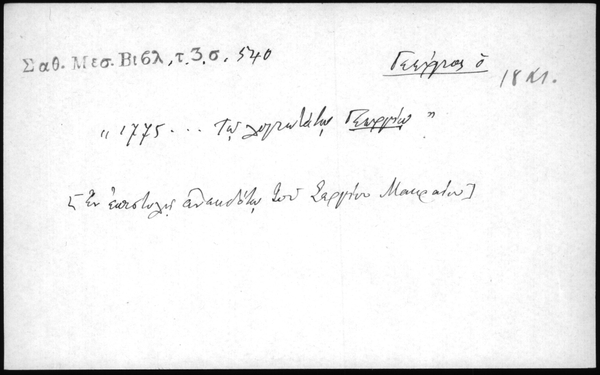 Σαθ. Μεσ. Βιβλ, τ. 3. σ. 540
Γεώργιος ὁ
18 αι.
„ 1775 ... Τῷ λογιωτάτῳ Γεωργίῳ "
[Ἐν ἐπιστολῇ ἀνεκδότῳ τοῦ Σεργίου Μακραίου]